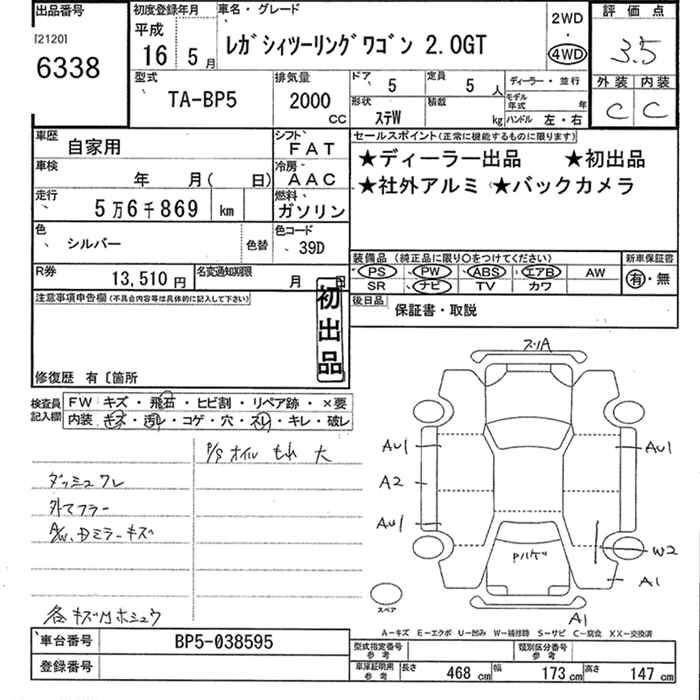 出品番号
[2120]
6338
初度登録年月
平成
16 5月
車名・グレード
レガシィツーリングワゴン 2.0GT
2WD
・
4WD
評価点
3.5
外装 内装
C C
型式
TA-BP5
排気量
2000
cc
ドア
5
定員
5人
ディーラー・並行
モデル年式 年
形状
ステW
積載
kg
ハンドル 左・右
車歴
自家用
シフト
FAT
車検
年 月( 日)
冷房
AAC
走行
5万6千869 km
燃料
ガソリン
色
シルバー
色替
色コード
39D
セールスポイント(正常に機能するものに限ります)
★ディーラー出品 ★初出品
★社外アルミ ★バックカメラ
装備品(純正品に限り○をつけてください)
新車保証書
PS PW ABS エアB AW
SR ナビ TV カワ
有・無
R券
13,510円
名変通知期限
月 日
後日品
保証書・取説
注意事項申告欄(不具合内容等は具体的に記入して下さい)
初出品
修復歴 有〔箇所
検査員記入欄
FW キズ・飛石・ヒビ割・リペア跡・×要
内装 キズ・汚レ・コゲ・穴・スレ・キレ・破レ
P/S オイル もれ 大
ダッシュワレ
外てフラー
A/W、Dミラーキズ
各キズ凹ホシュウ
ズリA
AU1
AU1
A2
AU1
Pハゲ
W2
A1
A1
スペア
A−キズ E−エクボ U−凹み W−補修跡 S−サビ C−腐食 XX−交換済
車台番号
BP5-038595
登録番号
型式指定番号
参考
類別区分番号
参考
車庫証明用
参考
長さ 468 cm
幅 173 cm
高さ 147 cm